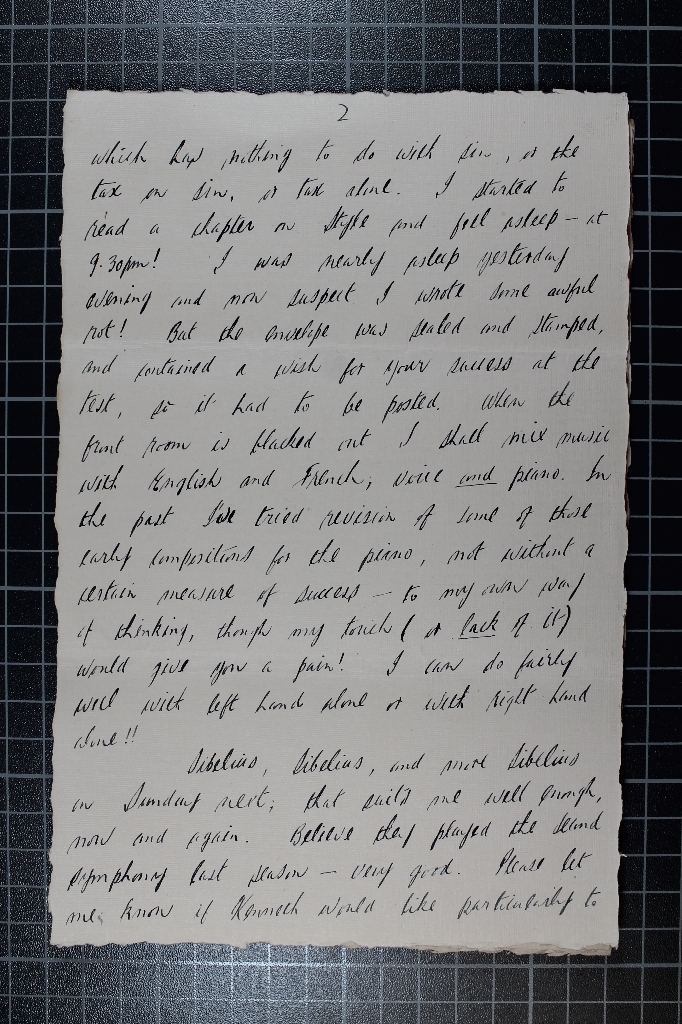 2
which has nothing to do with sin, or the
tax on sin, or tax alone. I started to
read a chapter on Style and fell asleep – at
9.30pm! I was nearly asleep yesterday
evening and now suspect I wrote some awful
rot! But the envelope was sealed and stamped,
and contained a wish for your success at the
test, so it had to be posted. When the
front room is blacked out I shall mix music
with English and French, voice and piano. In
the past I've tried revision of some of those
early compositions for the piano, not without a
certain measure of success – to my own way
of thinking, though my touch (or lack of it)
would give you a pain! I can do fairly
well with left hand alone or with right hand
alone!!
Sibelius, Sibelius, and more Sibelius
on Sunday next; that suits me well enough,
now and again. Believe they played the second
symphony last season – very good. Please let
me know if Kenneth would like particularly to